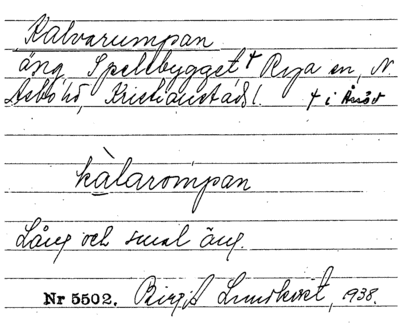 Kalvarumpan
äng, Spelebygget + Rya en, N.
Asbo hd, Kristianstads l. + i Årröd
kàlarompan
Lång och smal äng.
Nr 5502. Birgit Lundkvist, 1938.